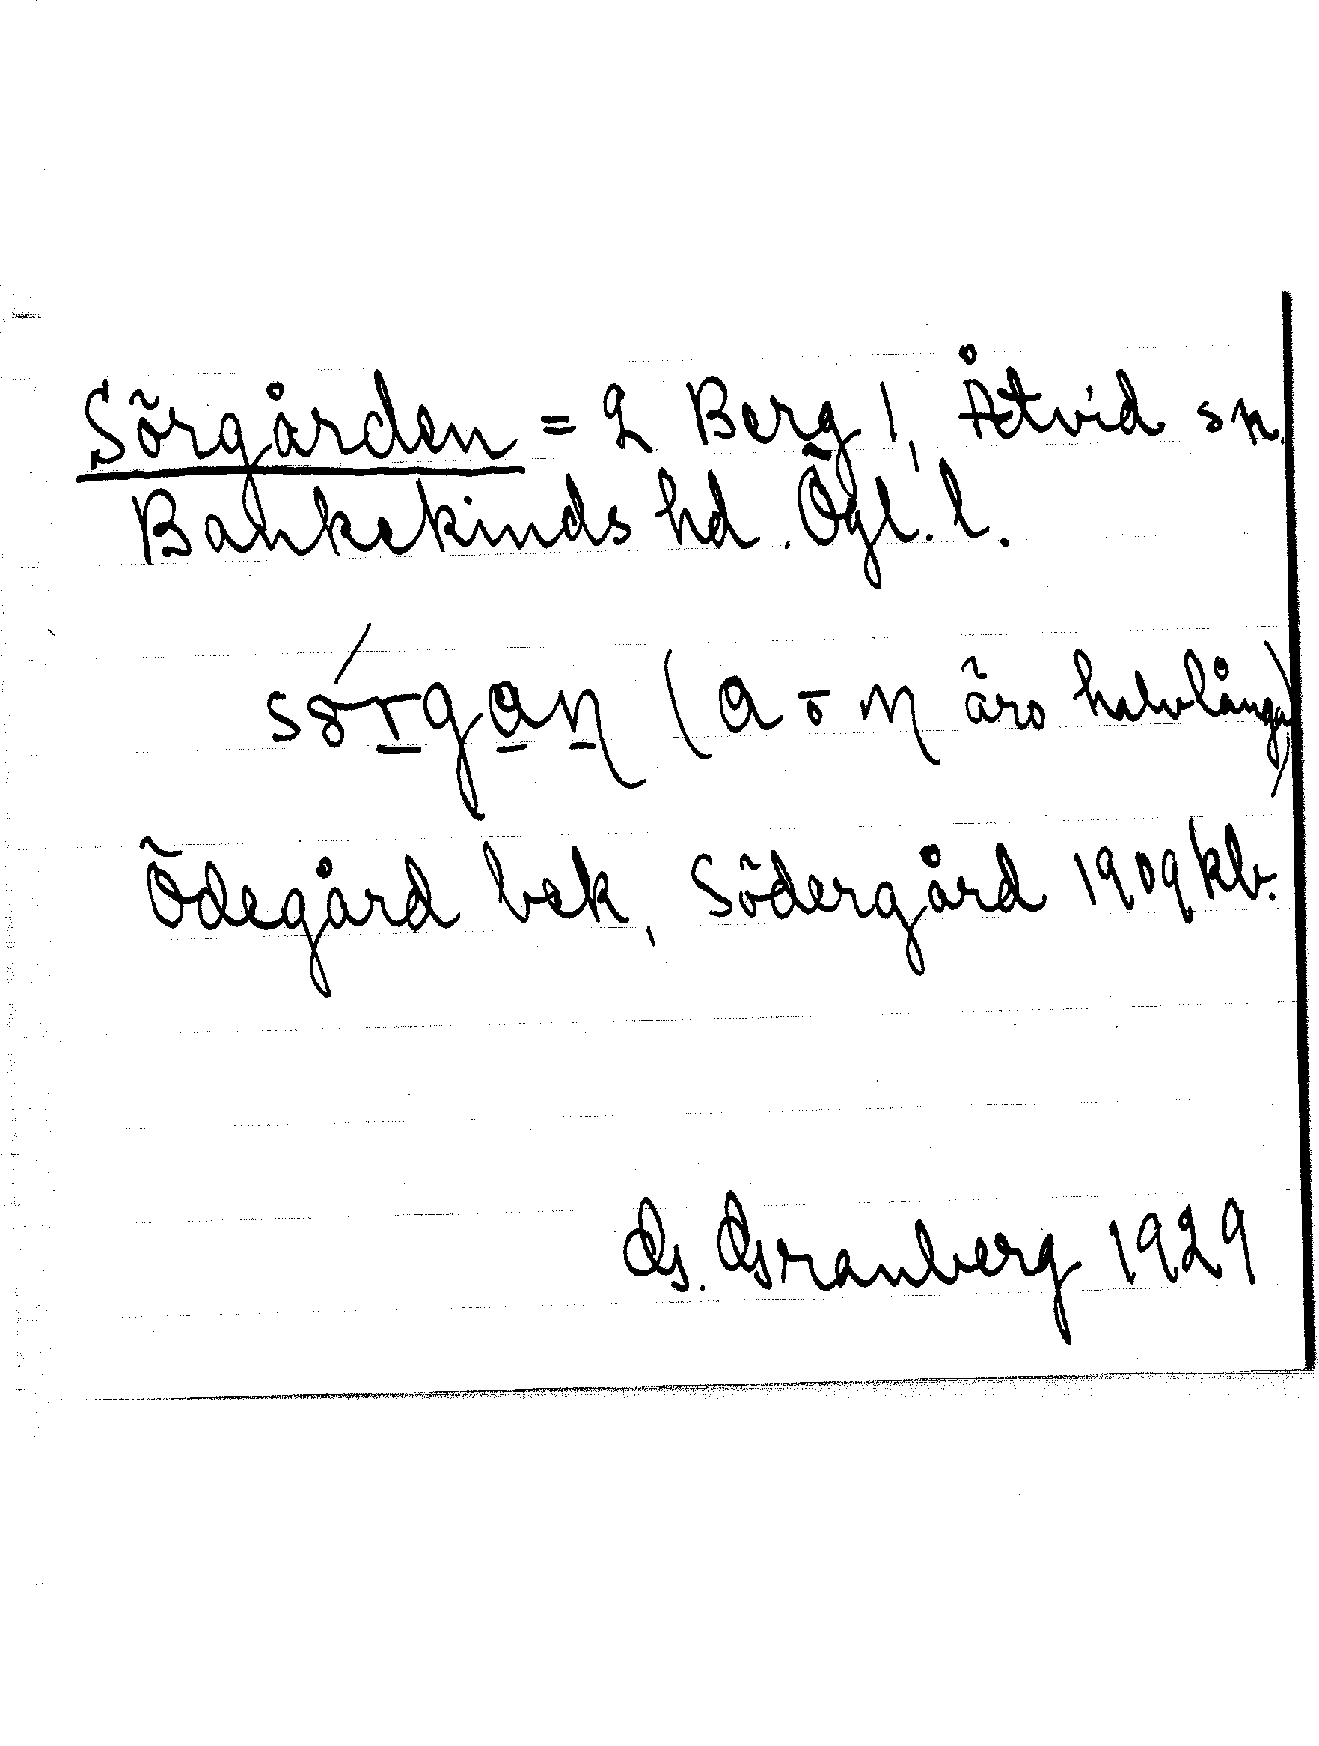 Sörgården = 2 Berg!, Åtvid sn.
Bankekinds hd. Ögl. l.
sörgaɳ (a o ɳ äro halvlånga)
Ödegård bek, Södergård 1909 kb.
G. Granberg 1929